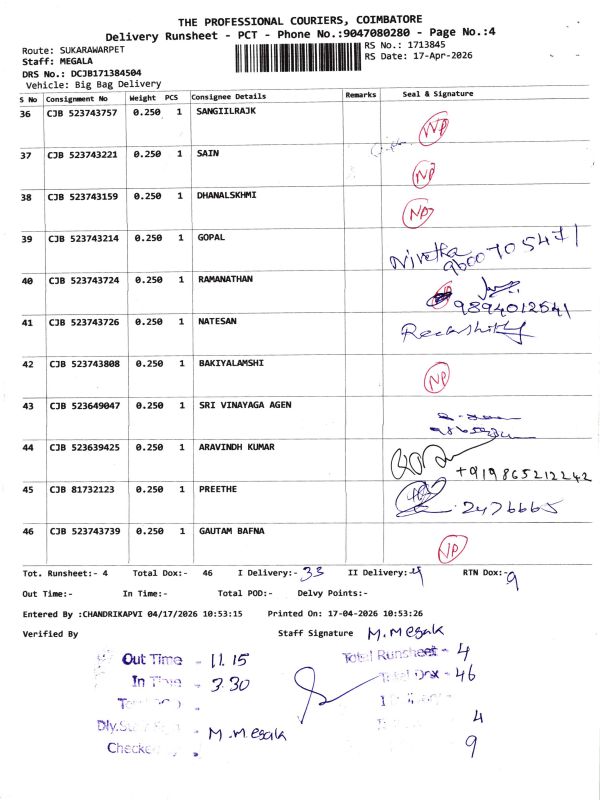 THE PROFESSIONAL COURIERS, COIMBATORE
Delivery Runsheet - PCT - Phone No.:9047080280 - Page No.:4
Route: SUKARAWARPET
RS No.: 1713845
Staff: MEGALA
RS Date: 17-Apr-2026
DRS No.: DCJB171384504
Vehicle: Big Bag Delivery
S No Consignment No Weight PCS Consignee Details Remarks Seal & Signature
36 CJB 523743757 0.250 1 SANGIILRAJK NP
37 CJB 523743221 0.250 1 SAIN NP
38 CJB 523743159 0.250 1 DHANALSKHMI NP
39 CJB 523743214 0.250 1 GOPAL Nivetha
9600705471
40 CJB 523743724 0.250 1 RAMANATHAN
9894012541
41 CJB 523743726 0.250 1 NATESAN
42 CJB 523743808 0.250 1 BAKIYALAMSHI NP
43 CJB 523649047 0.250 1 SRI VINAYAGA AGEN
44 CJB 523639425 0.250 1 ARAVINDH KUMAR
+919865212242
45 CJB 81732123 0.250 1 PREETHE 2476665
46 CJB 523743739 0.250 1 GAUTAM BAFNA NP
Tot. Runsheet:- 4 Total Dox:- 46 I Delivery:- 33 II Delivery:- 4 RTN Dox:- 9
Out Time:- In Time:- Total POD:- Delvy Points:-
Entered By :CHANDRIKAPVI 04/17/2026 10:53:15 Printed On: 17-04-2026 10:53:26
Verified By Staff Signature M. Megak
Out Time - 11.15
Total Runsheet - 4
In Time - 3.30
Total Dox - 46
4
M. Megak
9